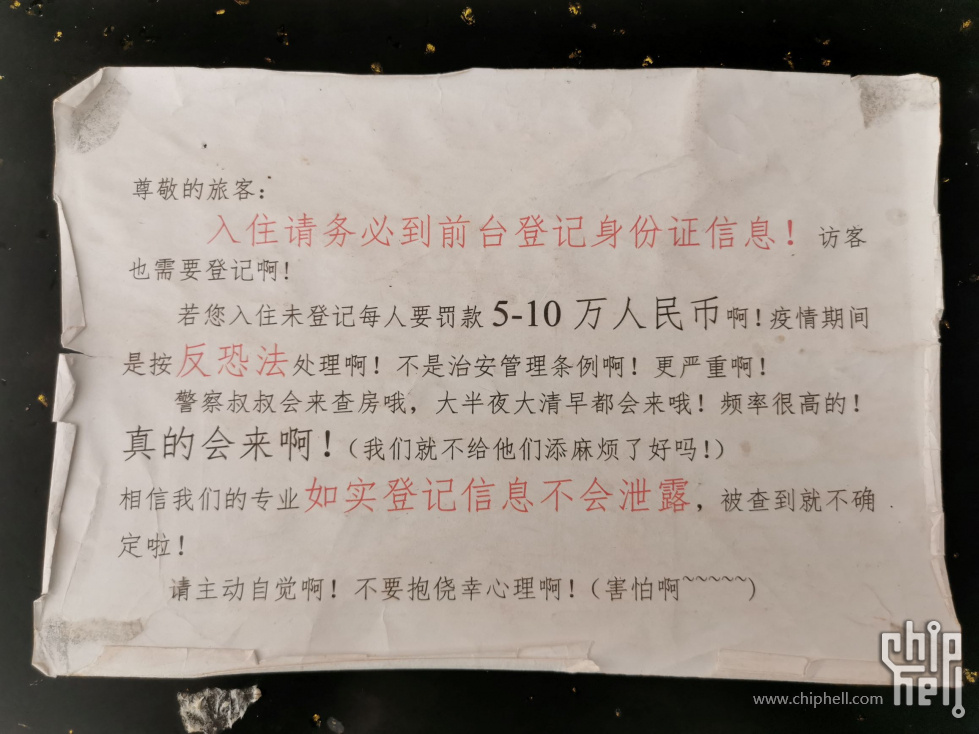 尊敬的旅客：
入住请务必到前台登记身份证信息！访客
也需要登记啊!
若您入住未登记每人要罚款 5-10 万人民币啊!疫情期间
是按反恐法处理啊！不是治安管理条例啊！更严重啊！
警察叔叔会来查房哦，大半夜大清早都会来哦！频率很高的！
真的会来啊！(我们就不给他们添麻烦了好吗!)
相信我们的专业如实登记信息不会泄露，被查到就不确
定啦！
请主动自觉啊！不要抱侥幸心理啊！(害怕啊~~~~~)
chip
hell
www.chiphell.com